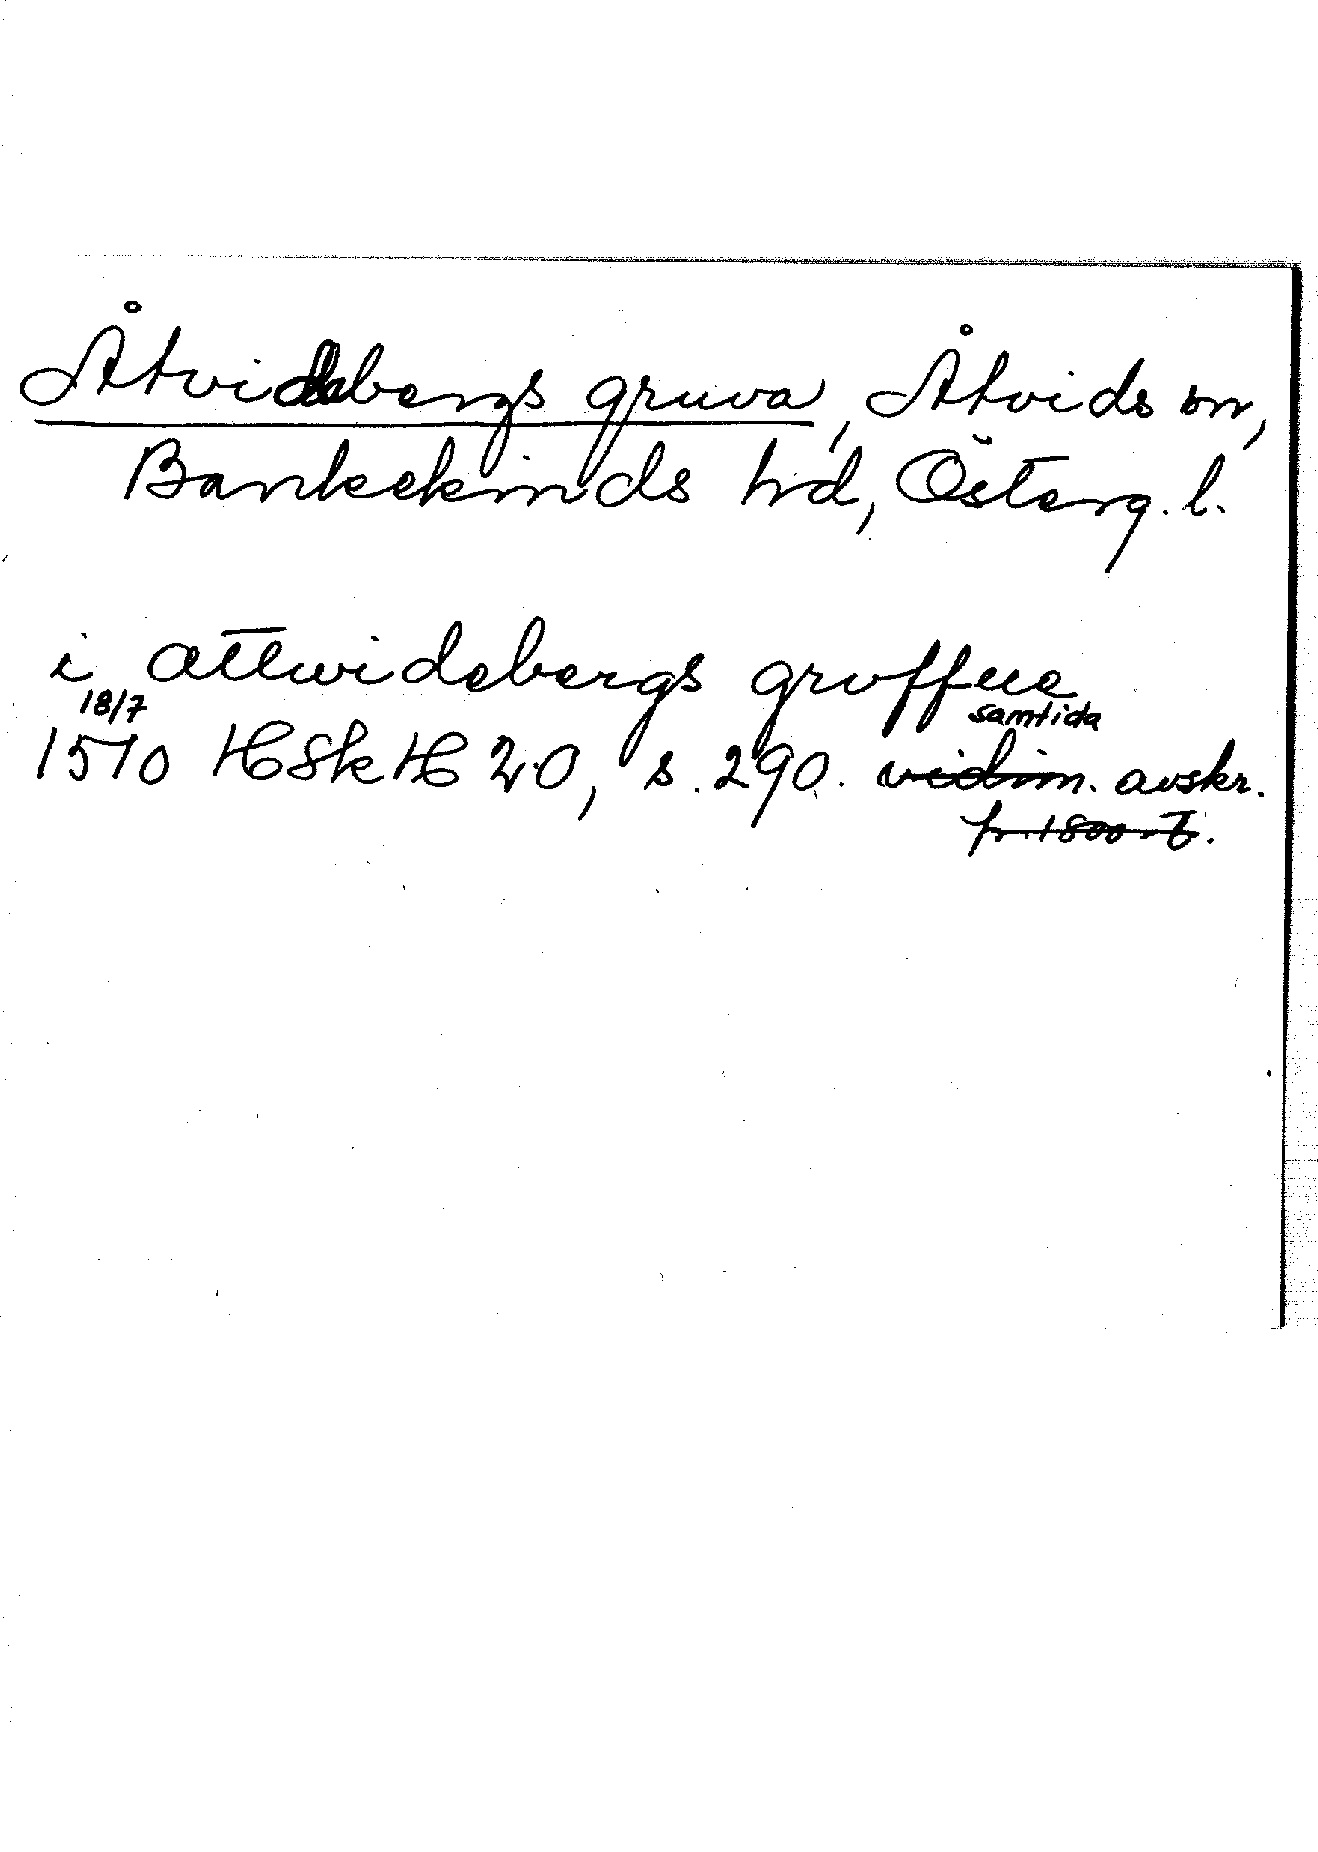 Åtvidabergs gruva, Åtvids sn,
Bankekinds hd, Österg. l.
i attwidebergs gruffue
18/7 samtida
1570 HSkH 20, s. 290. vidim. avskr.
fr. 1800-t.